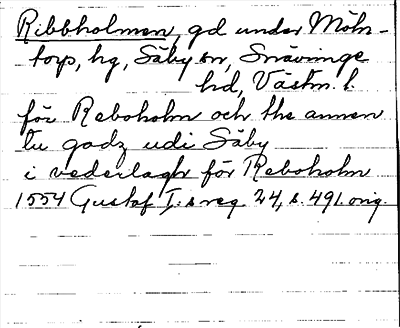 Ribbholmen, gd under Möln-
torp, hg, Säby sn, Snävringe
hd, Västm. l.
för Reboholm och the annen
tu godz udi Säby
i vederlagh för Reboholm
1554 Gustaf I:s reg. 24, s. 491. orig.